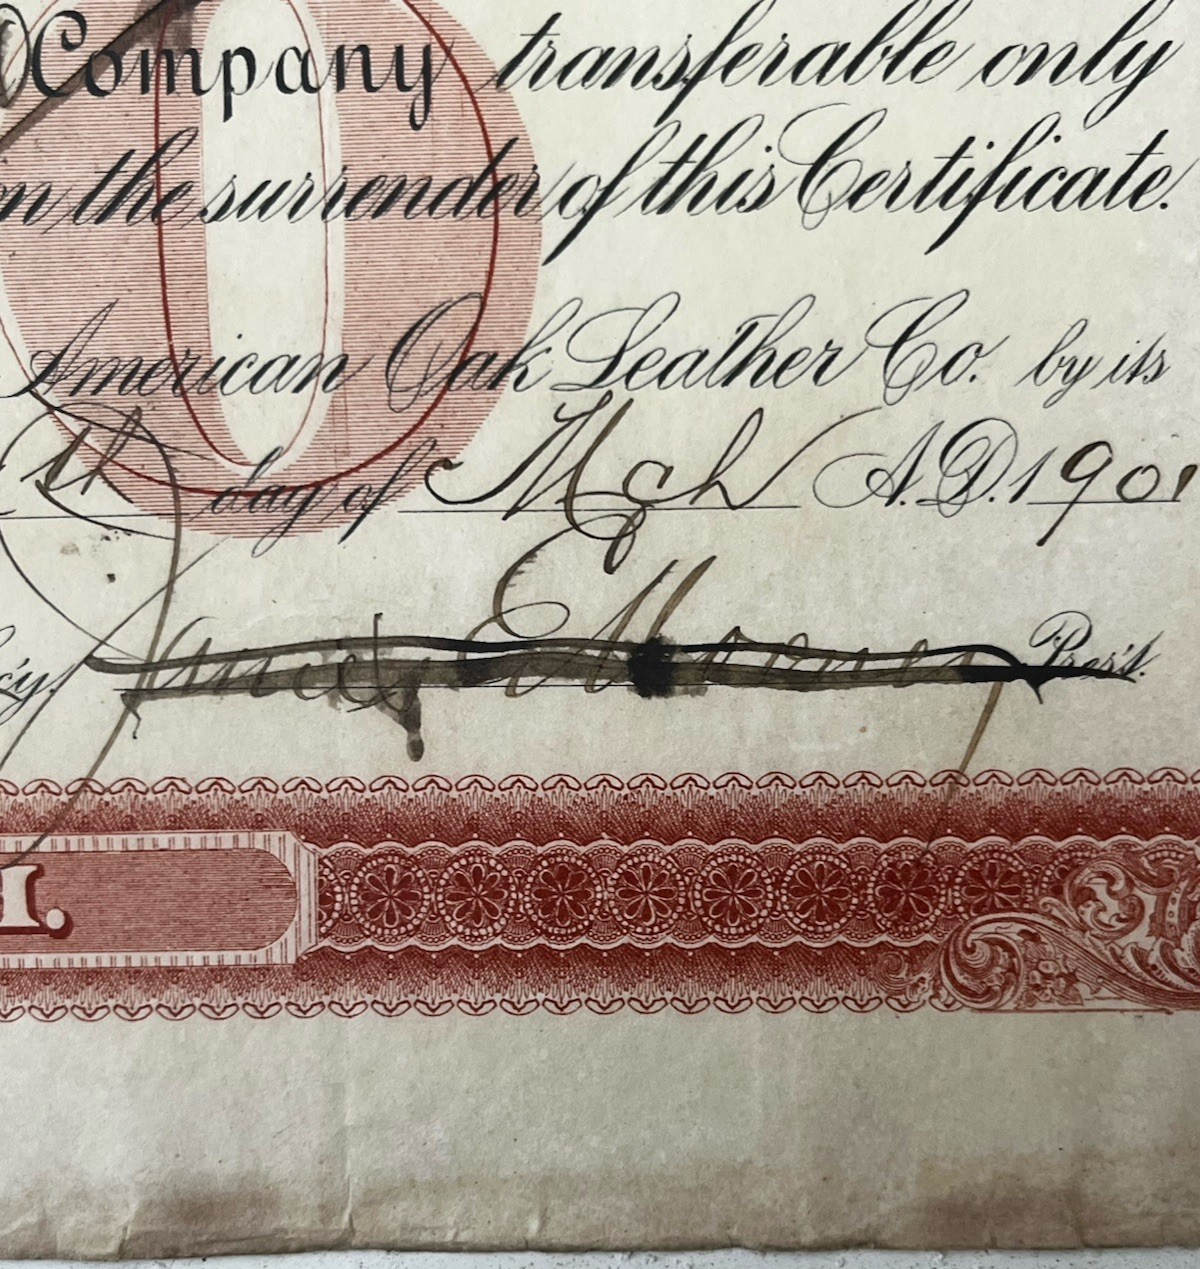 Company transferable only
the surrender of this Certificate.
American Oak Leather Co. by its
th day of Mch A.D. 1901
Pres't.
I.